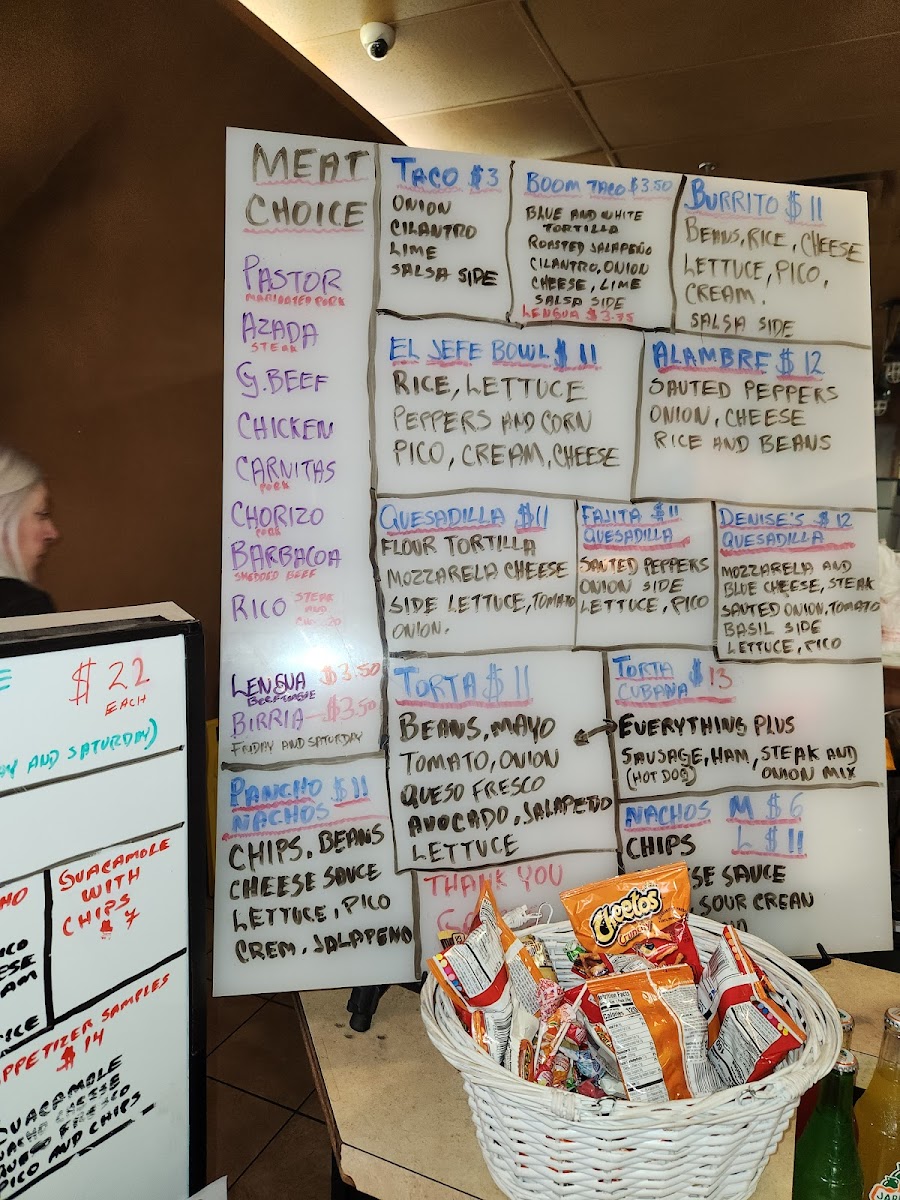 MEAT
CHOICE
PASTOR
MARINATED PORK
AZADA
STEAK
G.BEEF
CHICKEN
CARNITAS
PORK
CHORIZO
PORK
BARBACOA
SHEDDED BEEF
RICO STEAK
AND
LENGUA $3.50
BEEF TONGUE
BIRRIA $3.50
FRIDAY AND SATURDAY
TACO $3
ONION
CILANTRO
LIME
SALSA SIDE
BOOM TACO $3.50
BLUE AND WHITE
TORTILLA
ROASTED JALAPEÑO
CILANTRO, ONION
CHEESE, LIME
SALSA SIDE
LENGUA $3.75
BURRITO $11
BEANS, RICE, CHEESE
LETTUCE, PICO,
CREAM.
SALSA SIDE
EL JEFE BOWL $11
RICE, LETTUCE
PEPPERS AND CORN
PICO, CREAM, CHEESE
ALAMBRE $12
SAUTED PEPPERS
ONION, CHEESE
RICE AND BEANS
QUESADILLA $11
FLOUR TORTILLA
MOZZARELA CHEESE
SIDE LETTUCE, TOMATO
ONION.
FAJITA $11
QUESADILLA
SAUTED PEPPERS
ONION SIDE
LETTUCE, PICO
DENISE'S $12
QUESADILLA
MOZZARELA AND
BLUE CHEESE, STEAK
SAUTED ONION, TOMATO
BASIL SIDE
LETTUCE, PICO
TORTA $11
BEANS, MAYO
TOMATO, ONION
QUESO FRESCO
AVOCADO, JALAPEÑO
LETTUCE
TORTA $13
CUBANA
EVERYTHING PLUS
SAUSAGE, HAM, STEAK AND
(HOT DOG) ONION MIX
PANCHO $11
NACHOS
CHIPS, BEANS
CHEESE SAUCE
LETTUCE, PICO
CREM, JALAPEÑO
NACHOS M $6
L $11
CHIPS
SE SAUCE
SOUR CREAN
THANK YOU
$22
EACH
AY AND SATURDAY)
GUACAMOLE
WITH
CHIPS
$7
PPETIZER SAMPLES
$14
GUACAMOLE
NACHO CHEESE
QUESO FRESCO
PICO AND CHIPS
Cheetos
Crunchy
Nutrition Facts